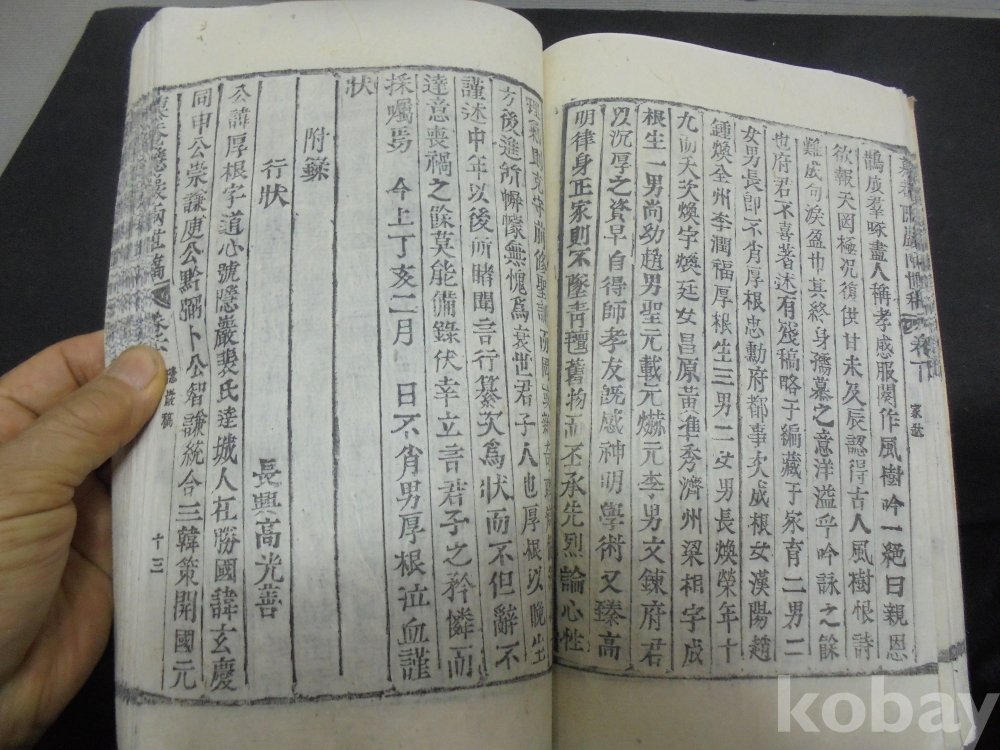 鵲庋羣啄盡人稱孝感服闋作風樹吟一絶曰親恩
欲報天罔極况復供甘未及辰認得古人風樹恨詩
難成句淚盈巾其終身孺慕之意洋溢乎吟詠之餘
也府君不喜著述有殘稿略干編藏于家育二男二
女男長卽不肖厚根忠勳府都事次成根女漢陽趙
鍾煥全州李潤福厚根生三男二女男長煥榮年十
九而夭次煥字煥廷女昌原黃準秀濟州梁相字成
根生一男尚幼趙男聖元載元爀元李男文鍊府君
以沉厚之資早自得師孝友旣感神明學術又臻高
明律身正家則不墜靑氈舊物而丕承先烈論心性
方後進所幪無愧爲衰世君子人也厚根以晚生
謹述中年以後所睹聞言行纂次爲狀而不但辭不
達意喪禍之餘莫能備錄伏幸立言君子之矜憐而
採囑焉 今上丁亥二月 日不肖男厚根泣血謹
狀
附錄
行狀
長興高光善
公諱厚根字道心號隱巖裴氏達城人在勝國諱玄慶
同申公崇謙庾公黔弼卜公智謙統合三韓策開國元
家狀
隱巖稿
十三
kobay